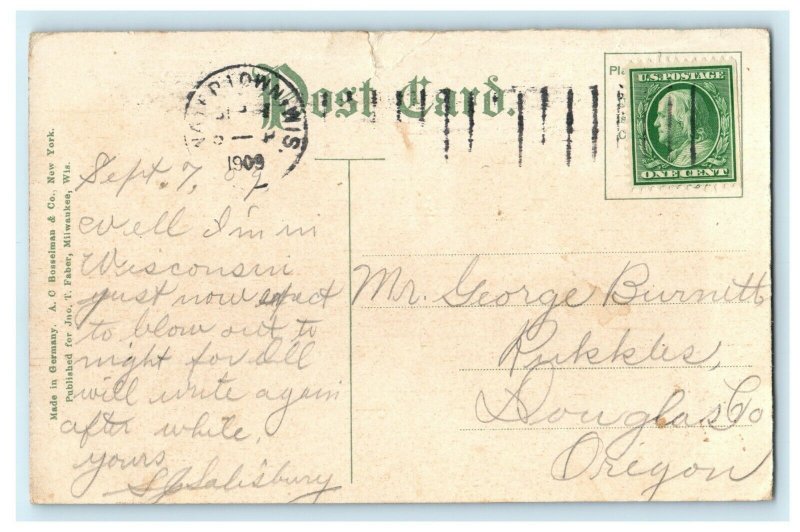 Post Card.
WATERTOWN, WIS.
1909
U.S. POSTAGE
ONE CENT
Made in Germany. A. C Bosselman & Co., New York.
Published for Jno. T. Faber, Milwaukee, Wis.
Sept 7,
Well I'm in
Wisconsin
just now
to blow out to
night for Ill
will write again
after while.
yours
Salisbury
Mr. George Burnett
Rukkles,
Douglas Co
Oregon